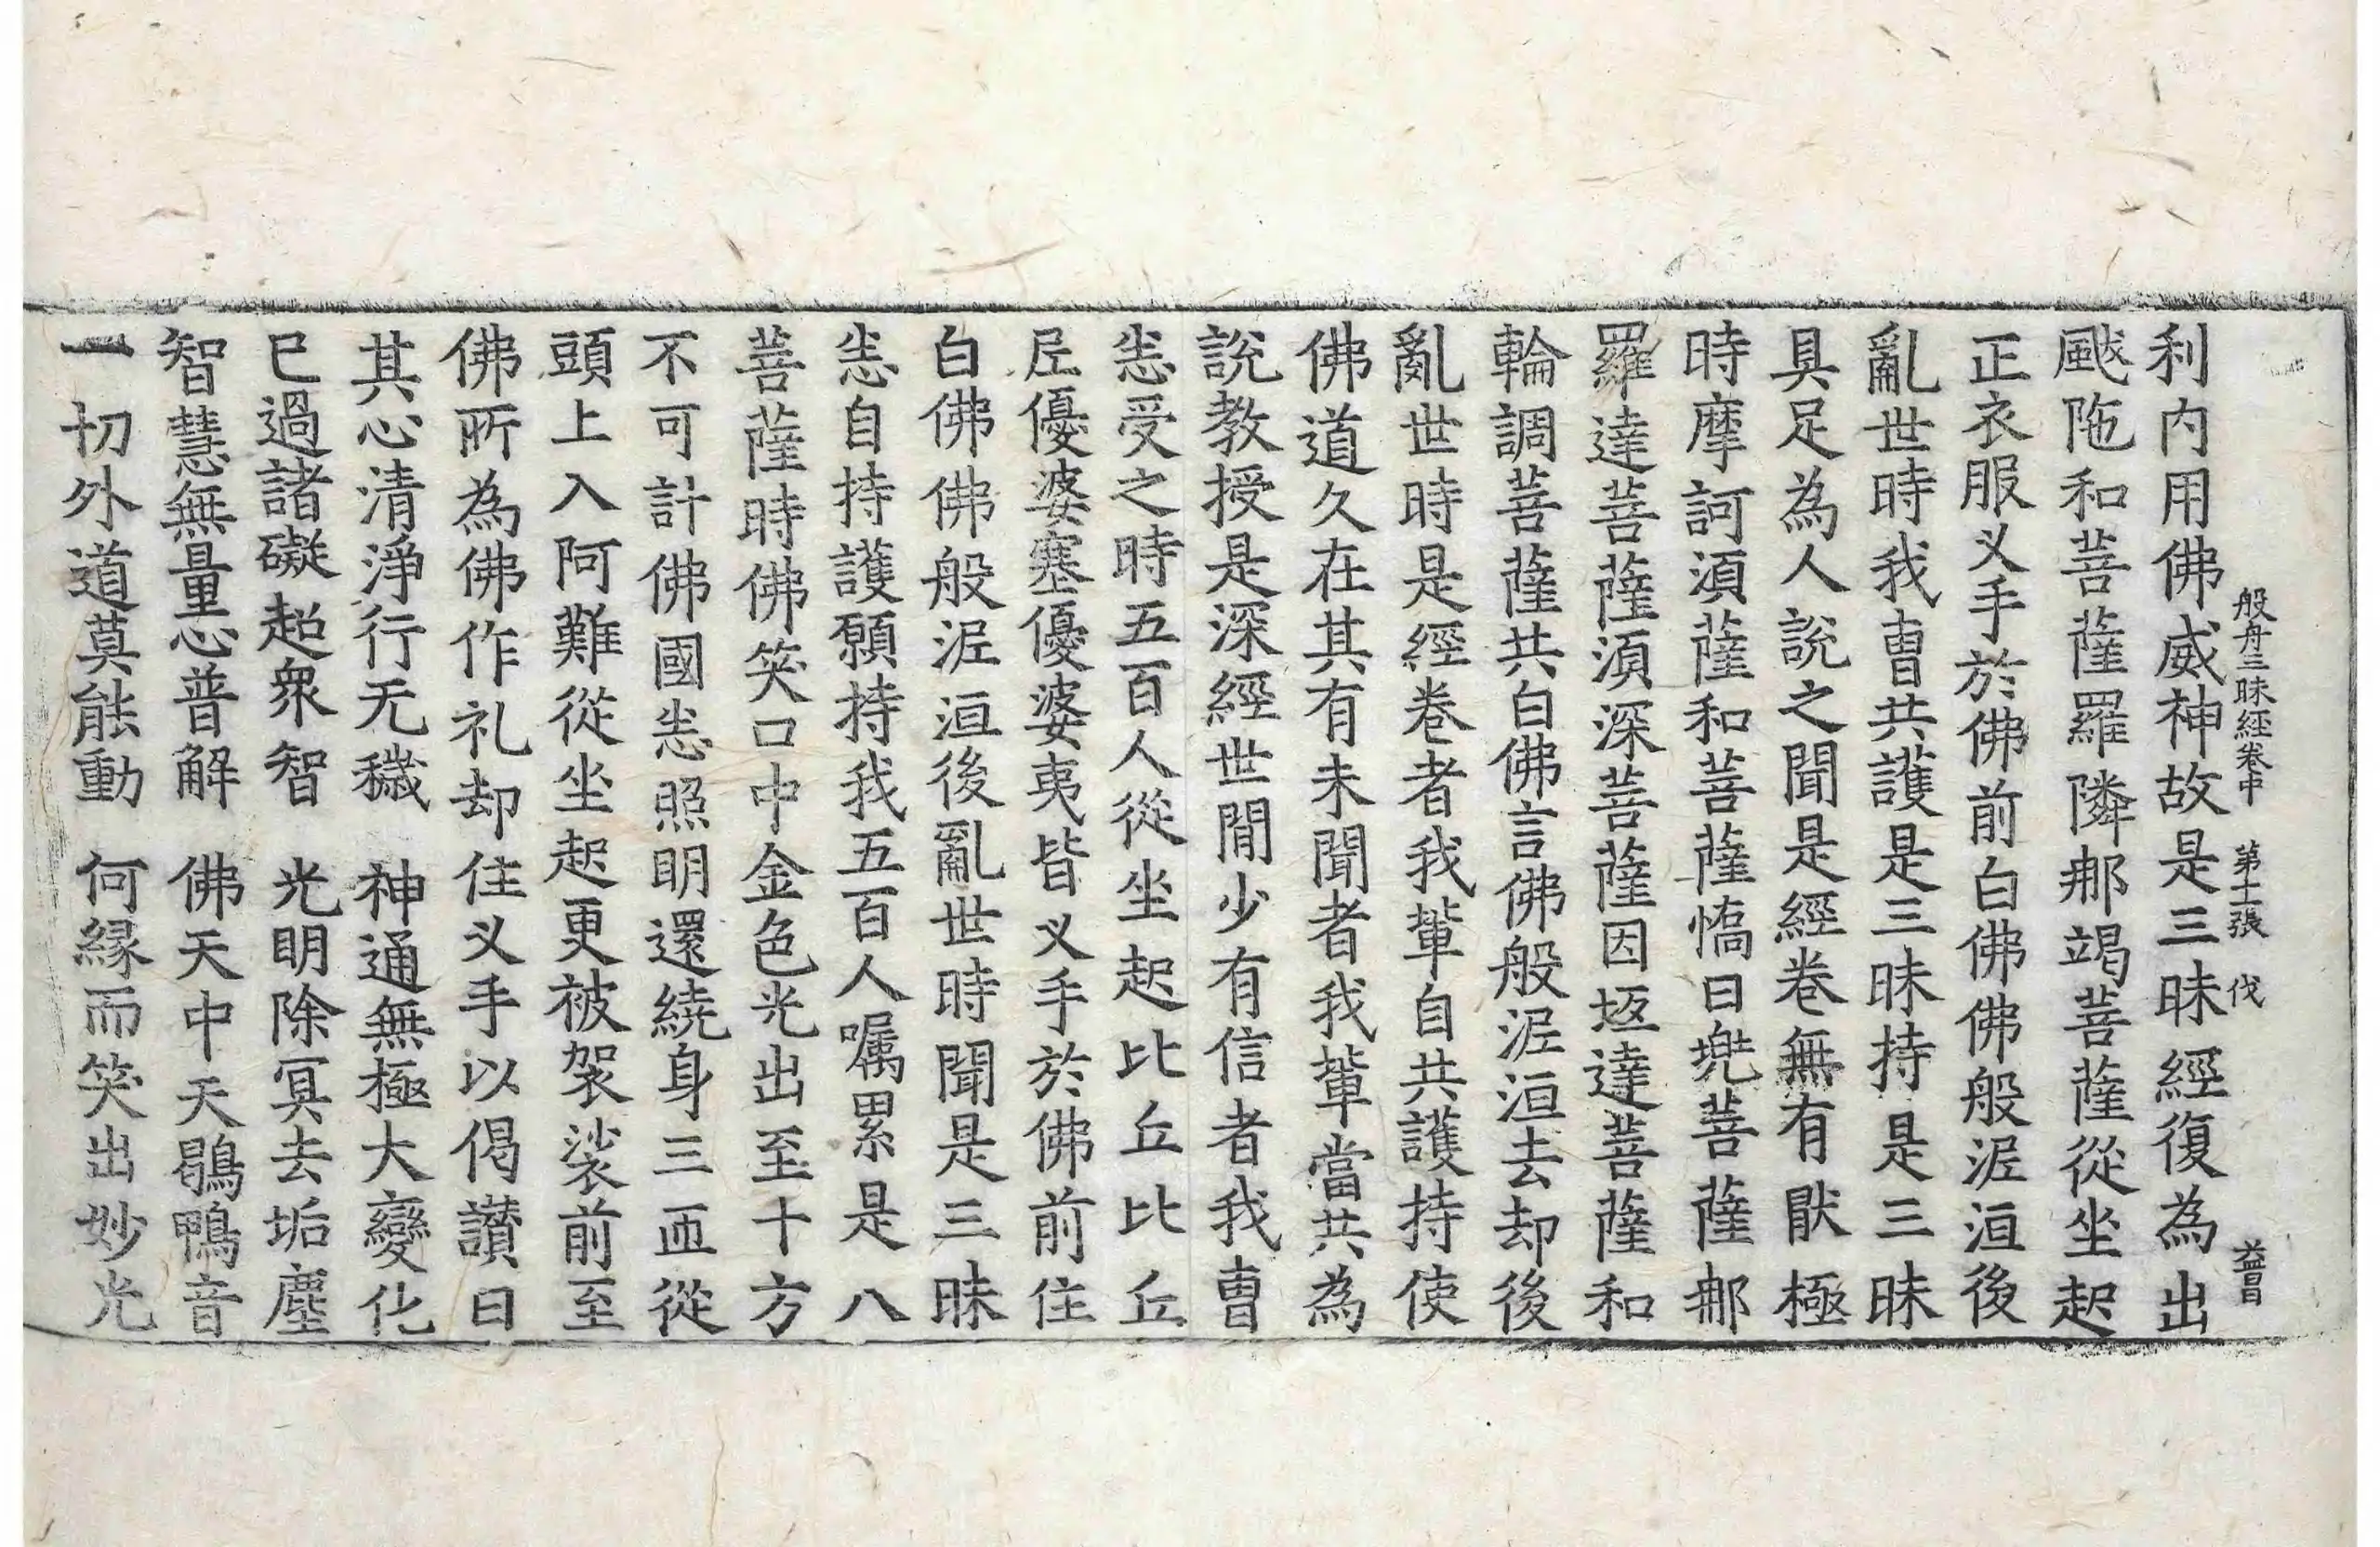 般舟三昧經卷中 第十二張 伐 益昌
利內用佛威神故是三昧經復為出
颰陁和菩薩羅隣那竭菩薩從坐起
正衣服叉手於佛前白佛佛般泥洹後
亂世時我曺共護是三昧持是三昧
具足為人說之聞是經卷無有猒極
時摩訶湏薩和菩薩憍曰兜菩薩那
羅達菩薩湏深菩薩因坻達菩薩和
輪調菩薩共白佛言佛般泥洹去却後
亂世時是經卷者我軰自共護持使
佛道久在其有未聞者我軰當共為
說教授是深經世閒少有信者我曺
悉受之時五百人從坐起比丘比丘
尼優婆塞優婆夷皆叉手於佛前住
白佛佛般泥洹後亂世時聞是三昧
悉自持護願持我五百人囑累是八
菩薩時佛笑口中金色光出至十方
不可計佛國悉照明還繞身三匝從
頭上入阿難從坐起更被袈裟前至
佛所為佛作礼却住叉手以偈讃曰
其心清淨行无穢 神通無極大變化
已過諸礙超衆智 光明除冥去垢塵
智慧無量心普解 佛天中天鶡鴨音
一切外道莫能動 何縁而笑出妙光